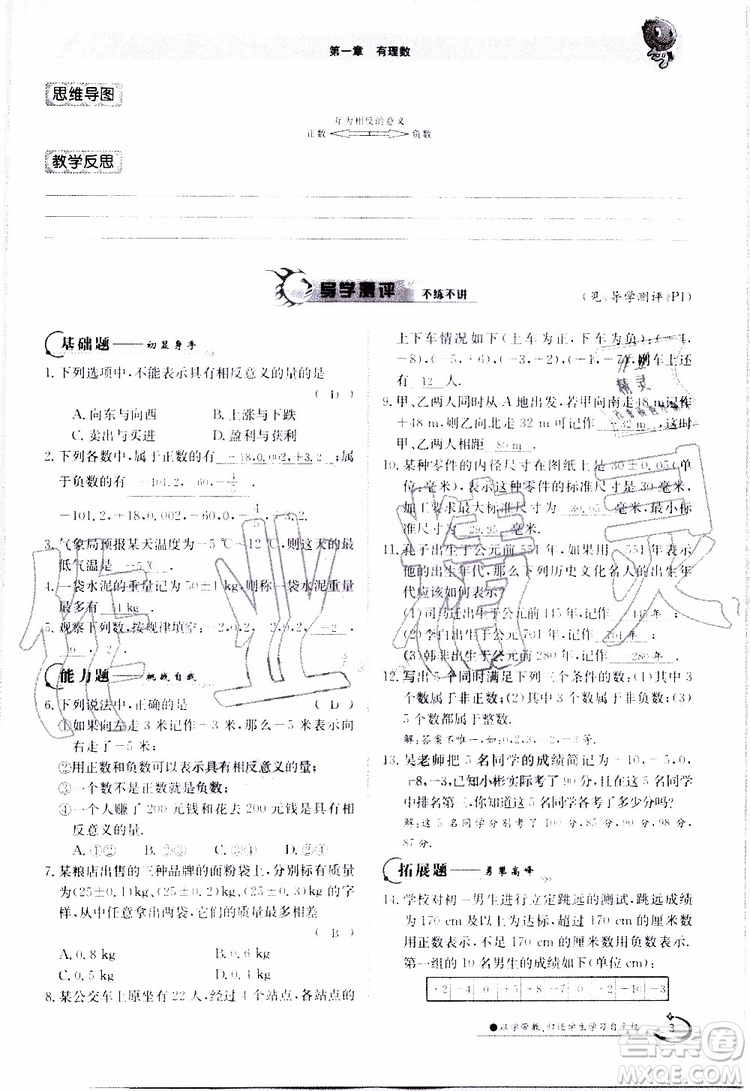 第一章 有理数
思维导图
互为相反的意义
正数 负数
教学反思
导学测评 不练不讲
(见《导学测评》P1)
基础题——初显身手
1. 下列选项中,不能表示具有相反意义的量的是
( D )
A. 向东与向西 B. 上涨与下跌
C. 卖出与买进 D. 盈利与获利
2. 下列各数中,属于正数的是 +18,0.002,+3.2 ;属
3. 气象局预报某天温度为-5 ℃~12 ℃,则当天的最
低气温是 -5 ℃ .
4. 一袋水泥的重量记为50±1 kg,则称一袋水泥重量
最多 1 kg .
5. 观察下列数,按规律填空:
能力题——挑战自我
6. 下列说法中,正确的是 ( D )
①如果向左走3米记作+3米,那么-5米表示向
右走了-5米;
②用正数和负数可以表示具有相反意义的量;
③一个数不是正数就是负数;
④一个人赚了200元钱和花去200元钱是具有相
反意义的量.
A. ①② B. ①③ C. ②③ D. ②④
7. 某粮店出售的三种品牌的面粉袋上,分别标有质量
为(25±0.1)kg,(25±0.2)kg,(25±0.3)kg的
字样,从中任意拿出两袋,它们的质量最多相差
( B )
A. 0.8 kg B. 0.6 kg
C. 0.5 kg D. 0.4 kg
8. 某公交车上原坐有22人,经过4个站点,各站点的
上下车情况如下(上车为正,下车为负):(+4,
-8),(-5,+6),(-3,+2),(+1,-7),则车上还
有 12 人.
9. 甲、乙两人同时从A地出发,若甲向南走48 m记作
+48 m,则乙向北走32 m记为 -32 m ,这时
甲、乙两人相距 80 m .
10. 某种零件的内径尺寸在图纸上是30±0.05(单
位:毫米),表示这种零件的标准尺寸是30毫米,
加工要求最大尺寸为 30.05 毫米,最小尺
寸为 29.95 毫米.
11. 孔子出生于公元前551年,用-551年表示出生的
年代,那么下列历史文化名人的出生年
代应该如何表示?
(1)司马迁出生于公元前145年,记作 -145年 ;
(2)李白出生于公元701年,记作 701年 ;
(3)韩非出生于公元前280年,记作 -280年 .
12. 写出5个同时满足下列三个条件的数:(1)其中3
个数属于非正数;(2)其中3个数属于非负数;(3)
5个数都属于整数.
解:答案不唯一,如:0,2,3,-2,-3.
13. 吴老师把5名同学的成绩简记为-10,-5,0,
+8,-3,已知小彬实际考了90分,且在5名同学
中排名第三,你知道这5名同学各考了多少分吗?
拓展题——勇攀高峰
14. 学校对初一男生进行立定跳远的测试,跳远成绩
为170 cm及以上为达标,超过170 cm的厘米数
用正数表示,不足170 cm的厘米数用负数表示.
第一组的10名男生的成绩如下(单位cm):
+2 -4 0 +5 +8 -7 0 +2 -10 -3
●以学带教,归还学生学习自主权
3
作业精灵
答案圈
MXQE.COM